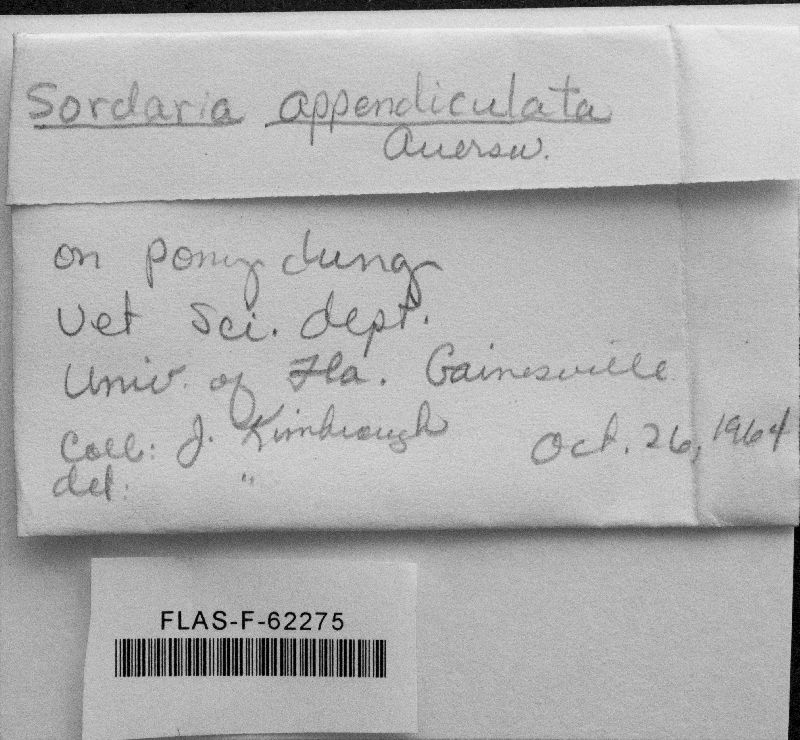 Sordaria appendiculata
Auersw.
on pony dung
Vet Sci. dept.
Univ. of Fla. Gainesville
Coll: J. Kimbrough Oct. 26, 1964
det: "
FLAS-F-62275